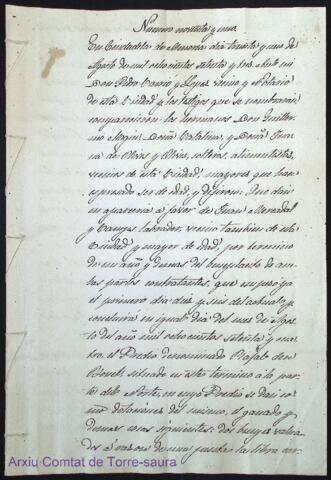 Numero noventa y uno.
En Ciudadela de Menorca dia treinta y uno de
Agosto de mil ochocientos setenta y tres. Ante mi
Don Pedro y Lopez vecino y Notario
de esta Ciudad y los testigos que se nombraran
comparecieron los hermanos Don Guiller-
mo Maria, Doña Catalina, y Doña Juana
de Olives y Olives, solteros, alimentistas,
vecinos de esta Ciudad, mayores que han
espresado ser de edad, y dijeron: Que dan
en aparceria a favor de Juan Mercadal
y labrador, vecino tambien de esta
Ciudad y mayor de edad, por termino
de un año y demas del beneplacito de am-
bas partes contratantes, que empezo ya
el primero dia diez y seis del actual y
concluirá en igual dia del mes de Agos-
to del año mil ochocientos setenta y cua-
tro, el Predio denominado Rafal den
situado en este termino a la par-
te del Norte, en cuyo Predio se dan co-
mo dotaciones del mismo, el ganado y
demas cosas siguientes: dos bueyes valua-
dos á razon de una peseta la libra car-
Arxiu Comtat de Torre-saura